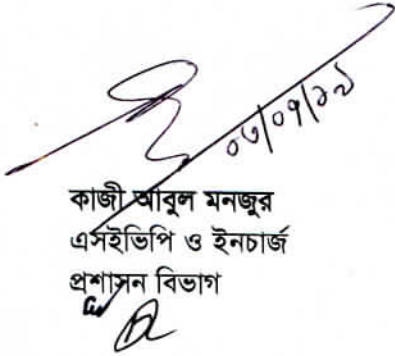 ০৩/০৭/১৯
কাজী আবুল মনজুর
এসইভিপি ও ইনচার্জ
প্রশাসন বিভাগ